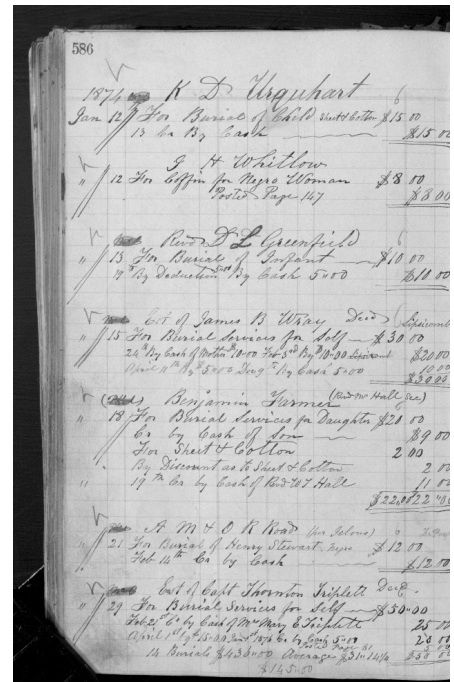 586
1874 K D Urquhart
Jan 12 For Burial of Child Sheet & Cotton $15 00
13 Cr By Cash $15 00
G H Whitlow
" 12 For Coffin for Negro Woman $8 00
Posted Page 147 $8 00
Revd D L Greenfield
" 13 For Burial of Infant $10 00
19th By Deduction 5"00 By Cash 5"00 $10 00
Est of James B Wray Decd Lipscomb
" 15 For Burial Services for Self $30 00
24th By Cash of Mother 10"00 Feb 3rd By 10"00 Lipscomb $20 00
April 11th By 5"00 By Cash 5"00 10 00
$30 00
Benjamin Farmer (Rev W Hall Sec)
" 18 For Burial Services for Daughter $20 00
Cr by Cash of Son $9 00
For Sheet & Cotton 2 00
By Discount as to Sheet & Cotton 2 00
19th Cr by Cash of Hall 11 00
$22.00 22"00
A M & O R Road
" 21 For Burial of Henry Stewart Negro $12 00
Feb 14th Cr by Cash $12 00
Est of Capt Thornton Triplett Decd
" 29 For Burial Services for Self $50"00
Feb 21st Cr by Cash of Mrs Mary E Triplett 25 00
April 1st by 15"00 1876 Cr by Cash 5"00 20 00
Posted Page
14 Burials Average
$145"00